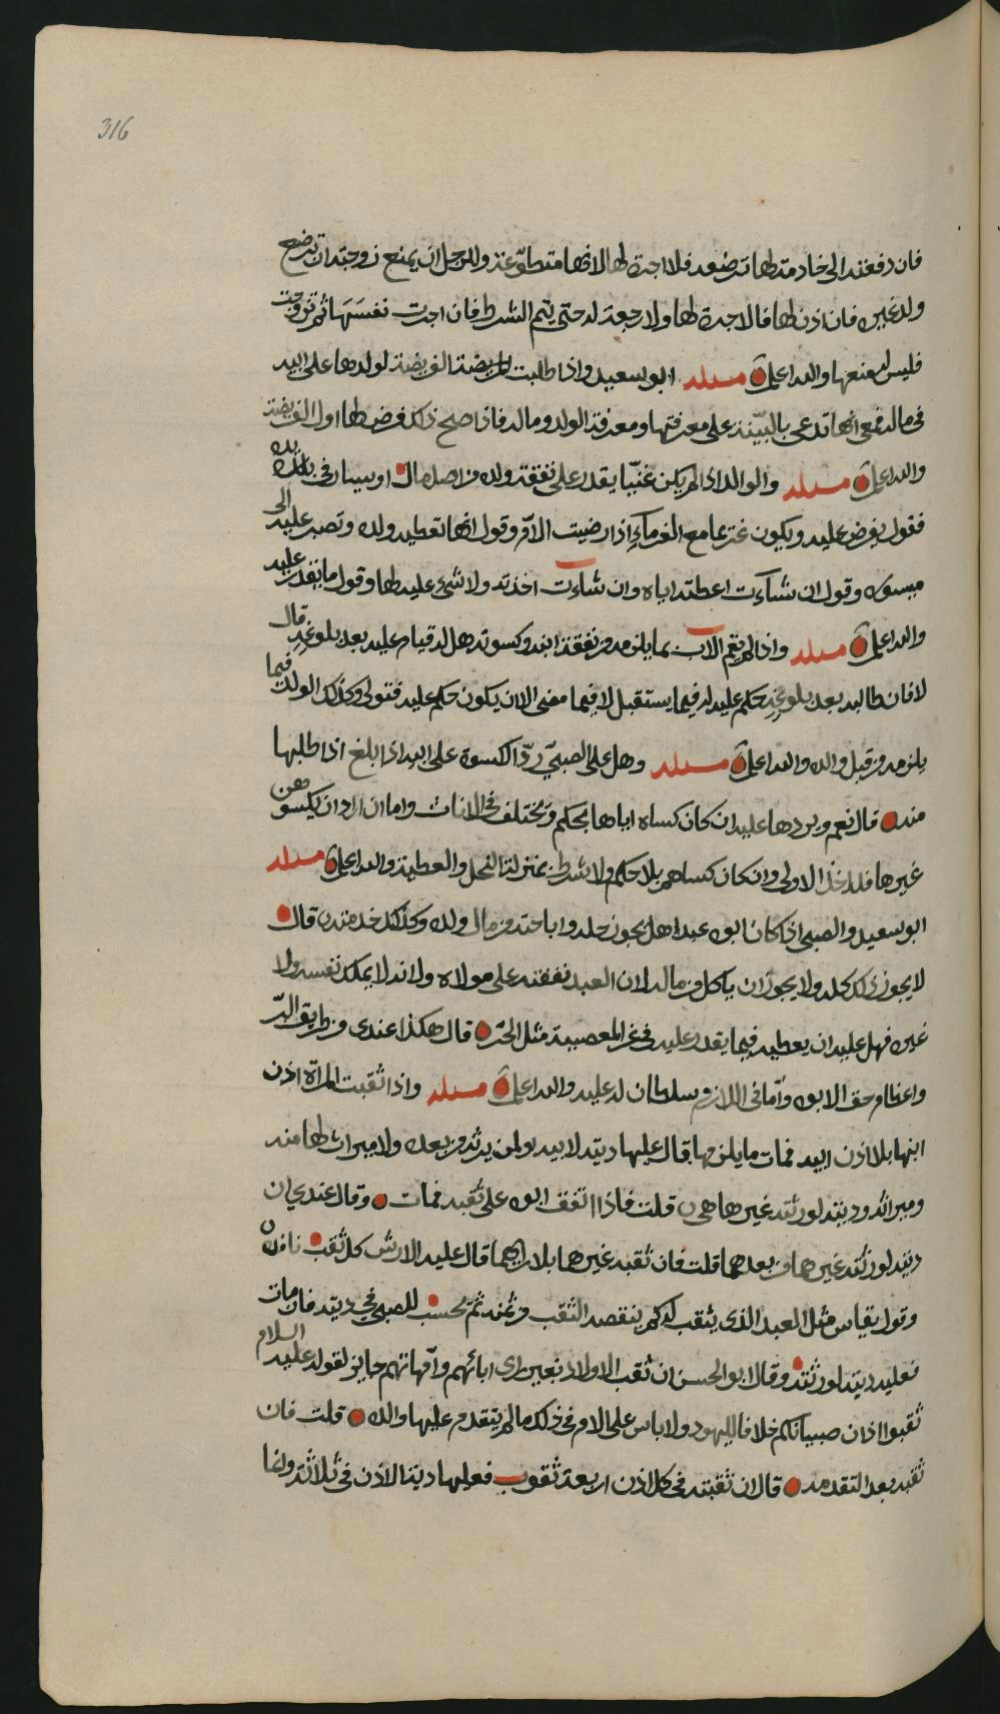 316
فان دفعته الى خادمتها ترضعه فلا اجرة لها لانها متطوعة وللرجل ان يمنع زوجته ان ترضع
ولد غيره فان اذن لها فالاجرة لها ولا رجعة له حتى يتم الشرط فان اجرت نفسها ثم تزوجت
فليس له منعها والله اعلم مسئلة ابو سعيد واذا طلبت المريضة الفريضة لولدها على ابيه
في ماله فمعي انها تدعى بالبينة على معرفتها ومعرفة الولد وماله فاذا صح ذلك فرض لها اول الفريضة
والله اعلم مسئلة والوالد اذا لم يكن غنيا يقدر على نفقة ولده من اصل مال او يسار في يده
فقول يفرض عليه ويكون غريما مع الغرماء اذا رضيت الام وقول انها تعطيه ولده وتصبر عليه الى
ميسوره وقول ان شاءت اعطته اياه وان شاءت اخذته ولا شيء عليه لها وقول ما يقدر عليه
والله اعلم مسئلة واذا لم يقم الاب بما يلزمه من نفقة ابنه وكسوته هل له قيام عليه بعد بلوغه قال
لا فان طالبه بعد بلوغه حكم عليه له فيما يستقبل لا فيما مضى الا ان يكون حكم عليه فتولى وكذلك الولد فيما
يلزمه من قبل والده والله اعلم مسئلة وهل على الصبي رد الكسوة على ابيه اذا بلغ اذا طلبها
منه قال نعم ويردها عليه ان كان كساه اياها بحكم ومختلف في الاناث واما ان اراد ان يكسوهن
غيرها فله اخذ الاولى وان كان كساهم بلا حكم ولا شرط بمنزلة النحل والعطية والله اعلم مسئلة
ابو سعيد والصبي اذا كان ابوه عبدا هل يجوز حله واباحته من مال ولده وكذلك خدمته قال
لا يجوز ذلك كله ولا يجوز ان ياكل من ماله لان العبد نفقته على مولاه ولانه لا يملك نفسه ولا
غيره فهل عليه ان يعطيه فيما يقدر عليه في غير المعصية مثل الحر قال هكذا عندي من طريق البر
واعظام حق الابوه واما في اللازم بسلطان له عليه والله اعلم مسئلة واذا ثقبت المراة اذن
ابنها بلا اذن ابيه فمات ما يلزمها قال عليها ديته لابيه ولمن يرثه من بعده ولا ميراث لها منه
وميراثه وديته لورثته غيرها هي قلت فاذا اتفق ابوه على ثقبه فمات وقال عندي ان
ديته لورثته غيرهما من بعدهما قلت فان ثقبه غيرهما بلا رايهما قال عليه الارش كل ثقب نافذ
وقول يقاس مثل العبد الذي يثقب لذكر بنقصه الثقب من ثمنه ثم يحسب للصبي في ديته فان مات
فعليه ديته لورثته وقال ابو الحسن ان ثقب الاولاد بغير راي ابائهم وامهاتهم جايز لقوله عليه السلام
ثقبوا اذان صبيانكم خلافا لليهود ولا باس على الام في ذلك ما لم يتقدم عليها والده قلت فان
ثقبه بعد التقدمه قال ان ثقبته في كل اذن اربعة ثقوب فعليها دية الاذن في ثلاثة وانما